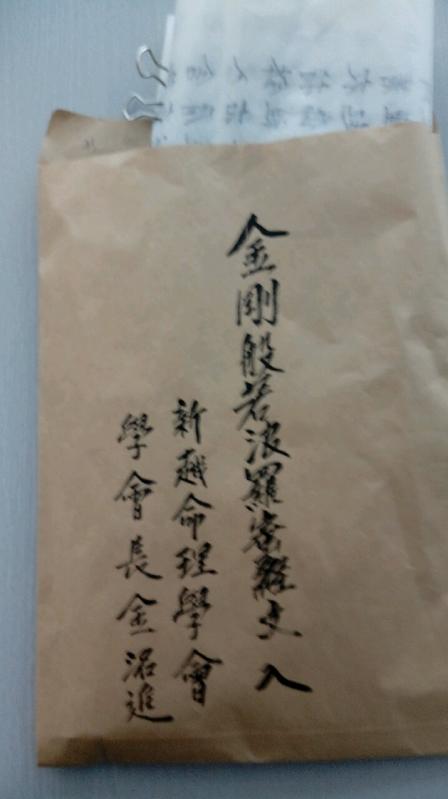 金剛般若波羅密經文入
新越命理學會
學會長金洺進